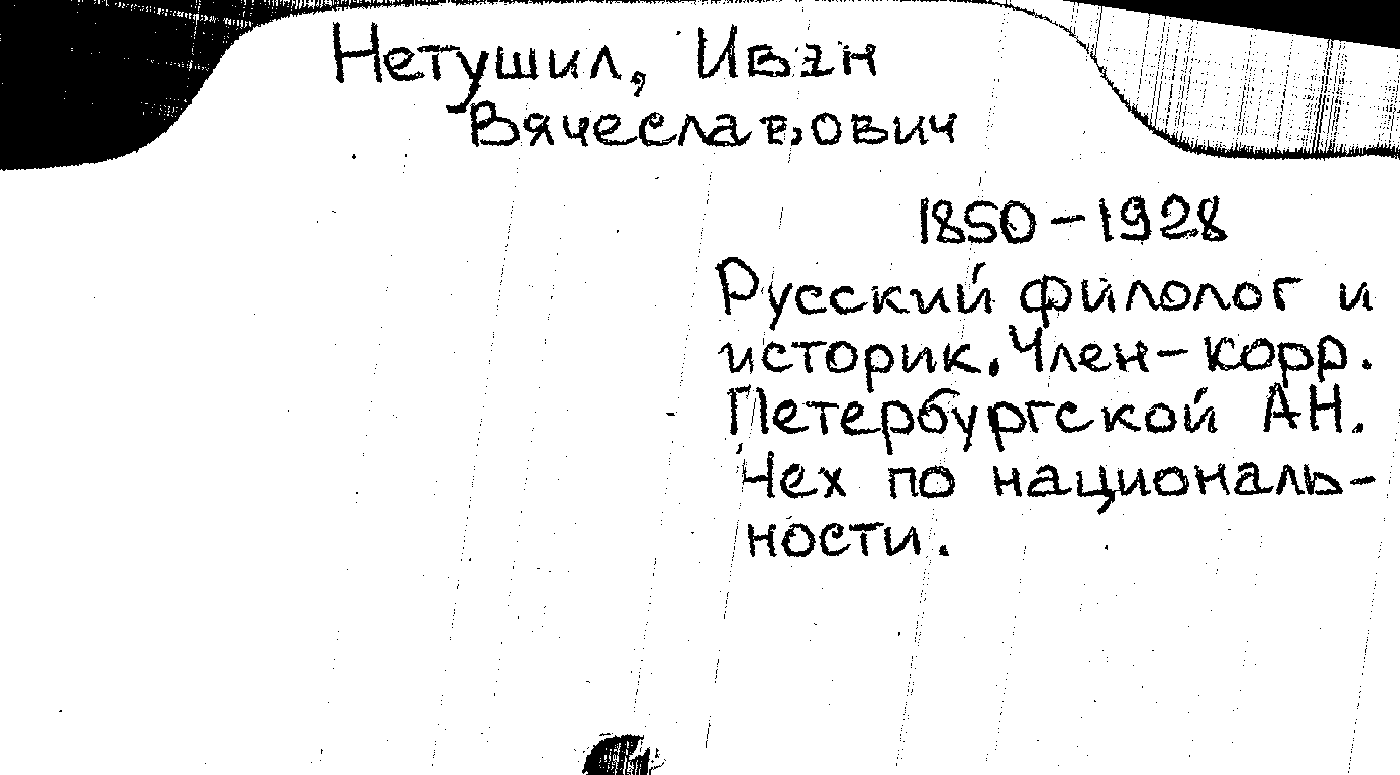 Нетушил, Иван
Вячеславович
1850-1928
Русский филолог и
историк. Член-корр.
Петербургской АН.
Чех по националь-
ности.